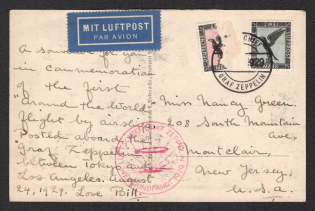 MIT LUFTPOST
PAR AVION
1929
GRAF ZEPPELIN
A souvenir for you
in commemoration
of the first
"Around the World"
flight by airship.
Posted aboard the
Graf Zeppelin
between Tokyo and
Los Angeles. August
24, 1929. Love Bill.
Miss Nancy Green
208 South Mountain
Ave,
Montclair,
New Jersey,
U.S.A.